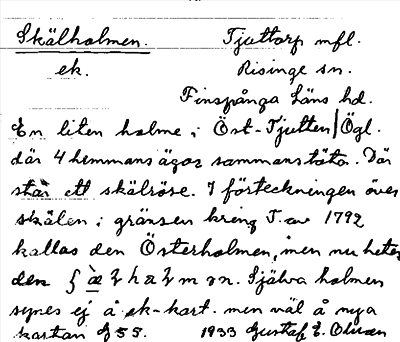 Skälholmen. Tjuttorp mfl.
ek. Risinge sn.
Finspånga Läns hd.
En liten holme i Öst-Tjutten/Ögl.
där 4 hemmans ägor sammanstöta. Där
står ett skälröse. I förteckningen över
skälen i gränsen kring T. av 1792
kallas den Österholmen, men nu heter
den Själva holmen
synes ej å ek-kart. men väl å nya
kartan 55. 1933 Gustaf E. Olsson